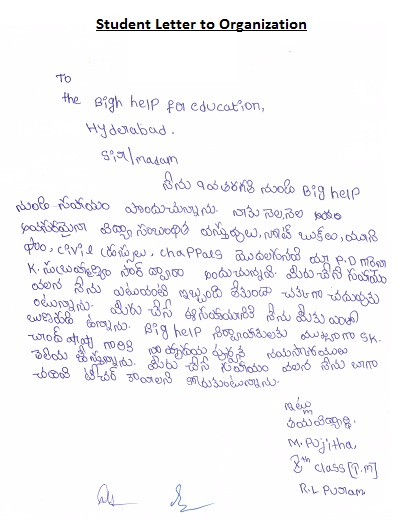 Student Letter to Organization
To
the Bigh help for education,
Hyderabad.
Sir/madam
నేను 1వ తరగతి నుండి Big help
నుండి సహాయం పొందుచున్నాను. నాకు నెల,నెల
అవసరమైన విద్యా సంబంధిత వస్తువులు, నోట్ బుక్‌లు, యూని
ఫాం, civil డ్రస్సులు, chappals మొదలగునవి మా P.D గారైన
K. సార్ ద్వారా అందుచున్నవి. మీరు చేసే సహాయం
వలన నేను ఎటువంటి ఇబ్బంది లేకుండా చక్కగా చదువుకుం
టున్నాను. మీరు చేసే ఈ సహాయానికి నేను మీకు ఎంతో
ఉన్నాను. Big help నిర్వాహకులకు ముఖ్యంగా SK.
చాంద్ గారికి నా హృదయ పూర్వక నమస్కారములు
తెలియ చేస్తున్నాను. మీరు చేసే సహాయం వలన నేను బాగా
చదివి టీచర్ కావాలని కోరుకుంటున్నాను.
ఇట్లు
M. Pujitha,
8th class [T.M]
R.L Puram